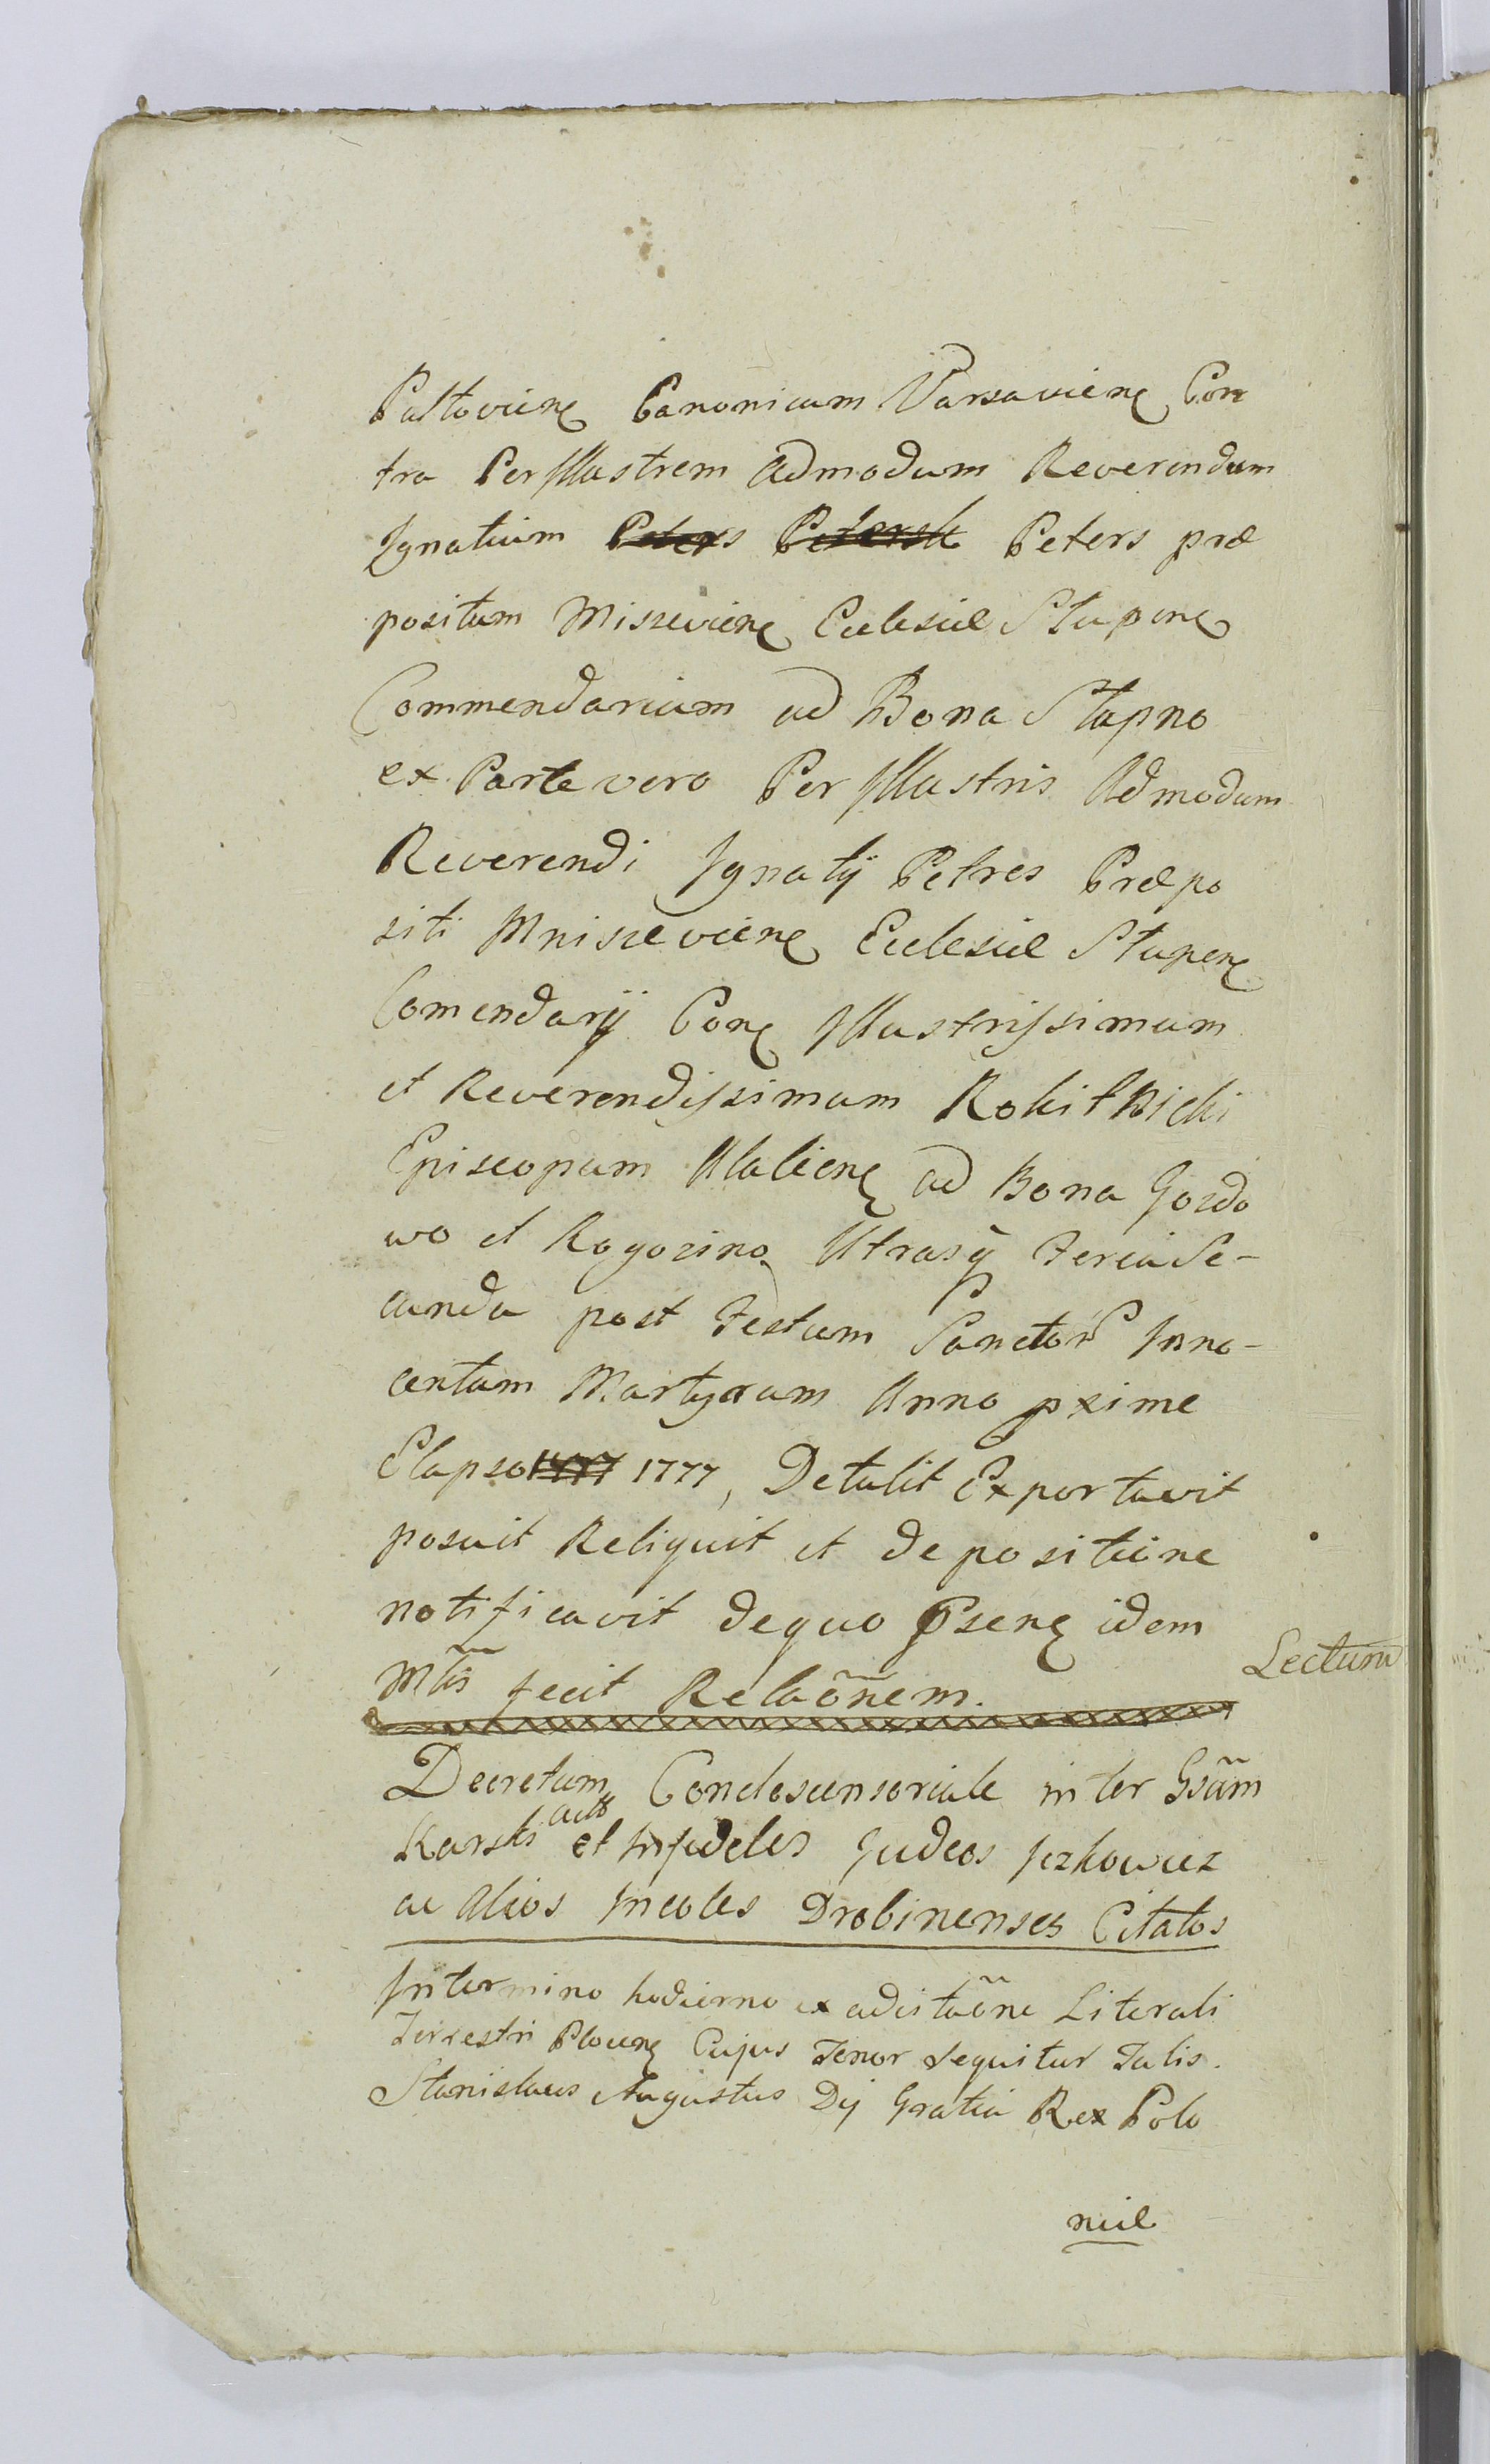 Pultovien Canonicum Varsavien Con
tra Per Illustrem Admodum Reverendum
Ignatium Peters Petersk Peters præ
positum Miszevien Eclesiæ Stupen
Commendarium ad Bona Stupno
ex Parte vero Per Illustris Admodum
Reverendi Ignatij Petres Præpo
siti Mniszevien Eclesiæ Stupen
Comendarij Con Illustrissimum
et Reverendissimum Rokitnicki
Episcopum Alalien ad Bona Gozdo
wo et Rogozino Utrasq Feria Se-
cunda post Festum Sanctor Inno-
centum Martyrum Anno pxime
Elapso 1777 1777, Detulit Exportavit
posuit Reliquit et de positione
notificavit de quo Psens idem
Mlis fecit Relaõnem.
Lectum
Decretum Condescensoriale inter Gsãm
Karski act et Infideles Judeos Iczkowicz
ac Alios Incoles Drobinenses Citatos
In termino hodierno ex adcitaõne Literali
Terrestri Plocen Cujus Tenor sequitur Talis.
Stanislaus Augustus Dij Gratia Rex Polo
niæ